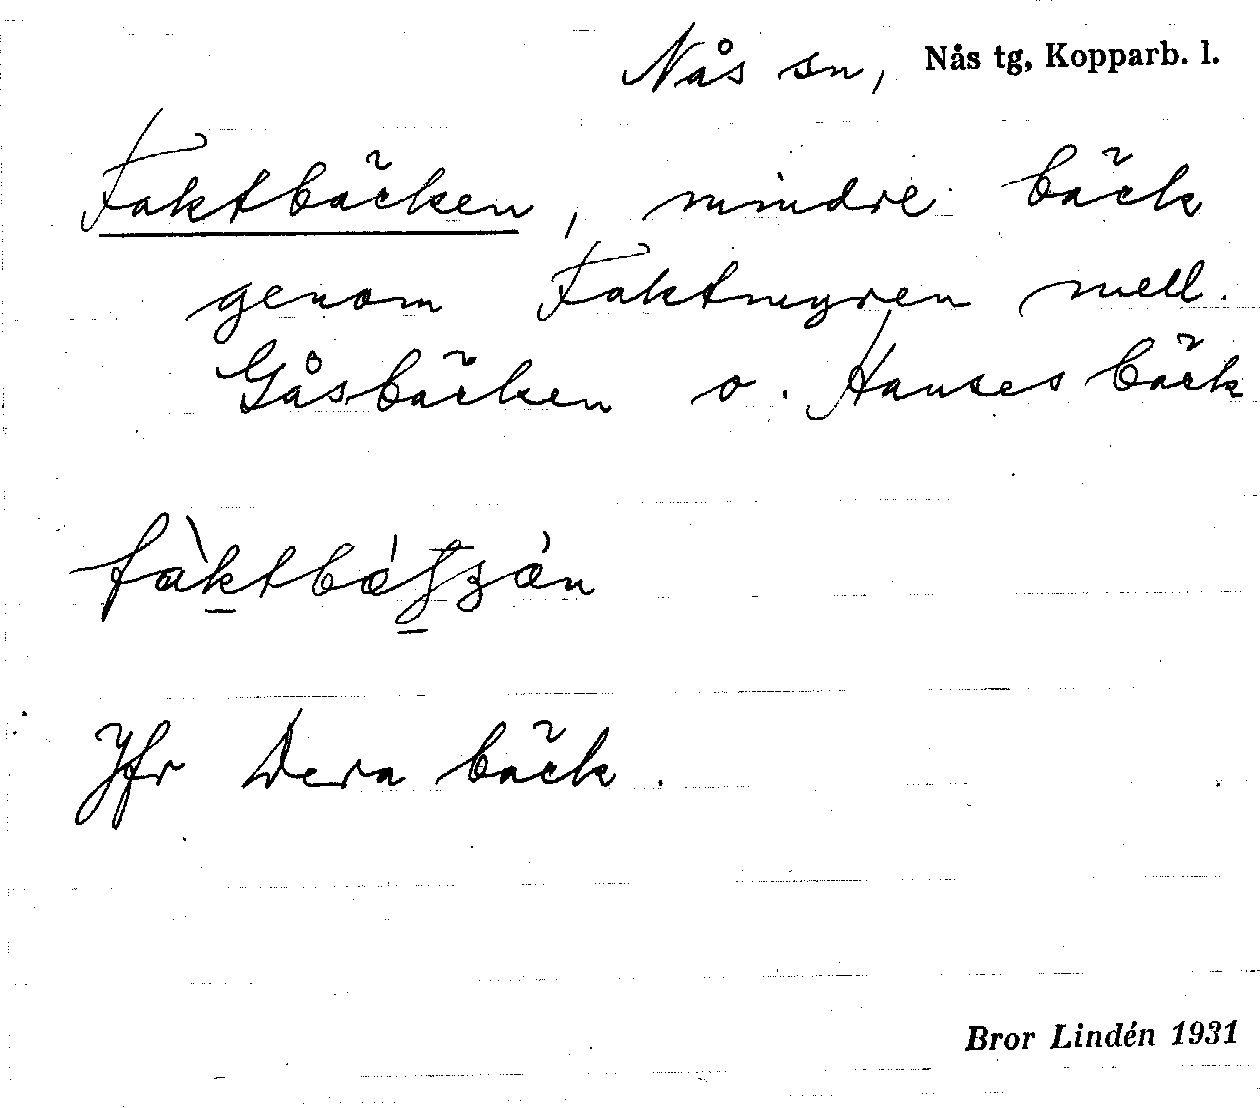 Nås sn, Nås tg, Kopparb. l.
Faktbäcken, mindre bäck
genom Faktmyren mell.
Gåsbäcken o. Hanses bäck
Jfr Dera bäck.
Bror Lindén 1931